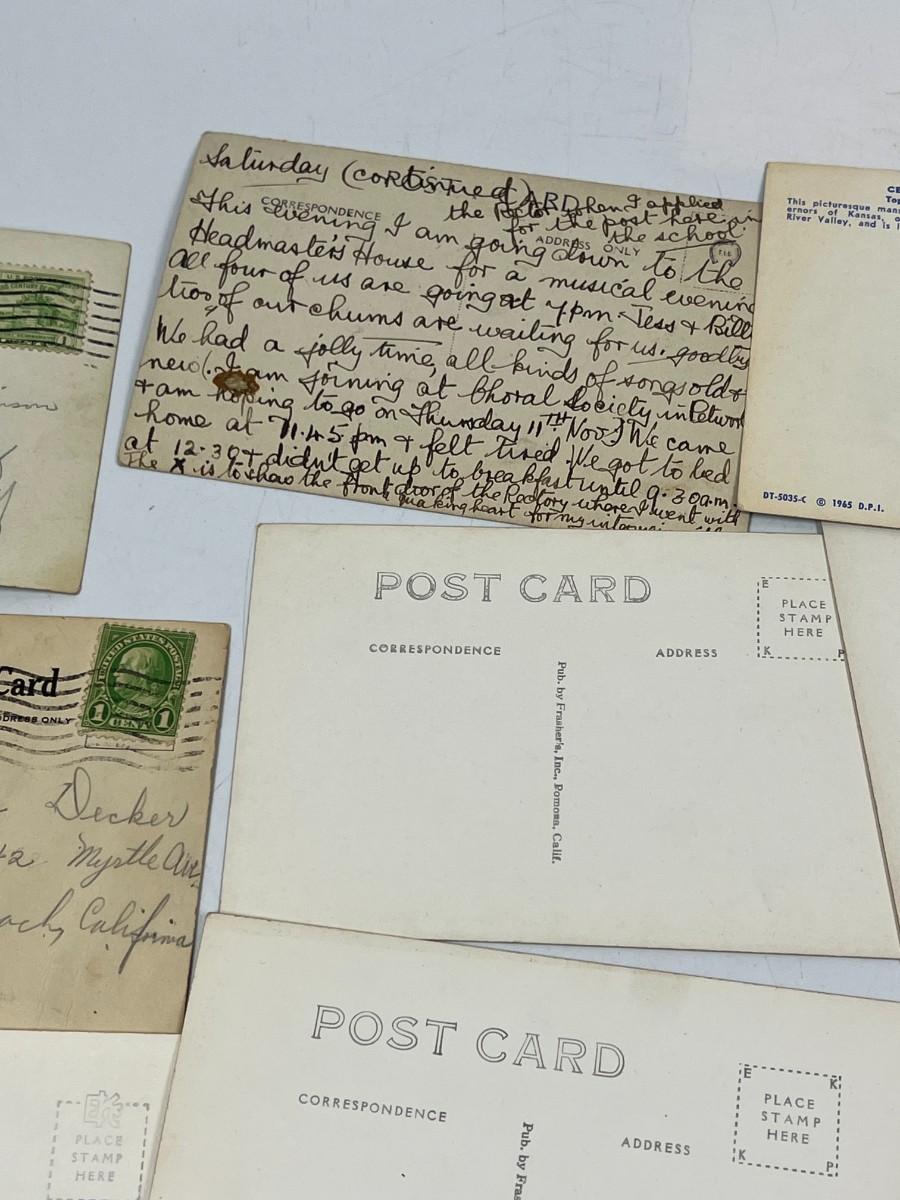 Saturday (continued)
CARD
CORRESPONDENCE
the Rector when I applied
for the post here in
the school.
ADDRESS ONLY
This evening I am going down to the
Headmaster's House for a musical evening
All four of us are going at 7pm Jess & Bill
two of our chums are waiting for us. goodbye
We had a jolly time, all kinds of songs old &
new (. I am joining at Choral Society in Petwor
& am hoping to go on Thursday 11TH Nov.) We came
home at 11.45 pm & felt tired. We got to bed
at 12.30 & didn't get up to breakfast until 9.30am.
The X is to show the front door of the Rectory where I went with
making heart for my
CE
Top
This picturesque mans
ernors of Kansas, o
River Valley, and is l
DT-5035-C © 1965 D.P.I.
1
nson
Card
DRESS ONLY
UNITED STATES POSTAGE
1 CENT 1
Decker
42 Myrtle Ave,
ach, California
POST CARD
CORRESPONDENCE
ADDRESS
E
PLACE
STAMP
HERE
K P
Pub. by Frasher's, Inc., Pomona, Calif.
POST CARD
CORRESPONDENCE
ADDRESS
E K
PLACE
STAMP
HERE
K P
Pub. by Fras
EKC
PLACE
STAMP
HERE